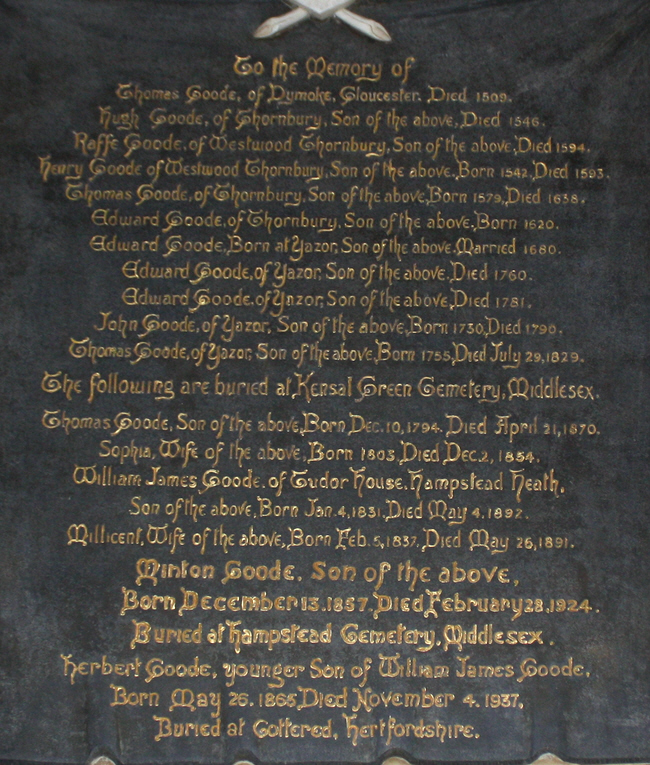 To the Memory of
Thomas Goode, of Dymoke, Gloucester. Died 1509.
Hugh Goode, of Thornbury, Son of the above, Died 1546.
Raffe Goode, of Westwood Thornbury, Son of the above, Died 1594.
Henry Goode of Westwood Thornbury, Son of the above, Born 1542, Died 1593.
Thomas Goode, of Thornbury, Son of the above, Born 1579, Died 1638.
Edward Goode, of Thornbury, Son of the above, Born 1620.
Edward Goode, Born at Yazor, Son of the above. Married 1680.
Edward Goode, of Yazor, Son of the above. Died 1760.
Edward Goode, of Yazor, Son of the above, Died 1781.
John Goode, of Yazor, Son of the above, Born 1730, Died 1790.
Thomas Goode, of Yazor, Son of the above, Born 1755, Died July 29, 1829.
The following are buried at Kensal Green Cemetery, Middlesex.
Thomas Goode, Son of the above, Born Dec. 10, 1794. Died April 21, 1870.
Sophia, Wife of the above, Born 1803, Died Dec. 2, 1854.
William James Goode, of Tudor House, Hampstead Heath,
Son of the above, Born Jan. 4, 1831, Died May 4, 1892.
Millicent, Wife of the above, Born Feb. 5, 1837, Died May 26, 1891.
Minton Goode, Son of the above,
Born December 13, 1857, Died February 28, 1924.
Buried at Hampstead Cemetery, Middlesex.
Herbert Goode, younger Son of William James Goode,
Born May 26. 1865, Died November 4. 1937,
Buried at Cottered, Hertfordshire.